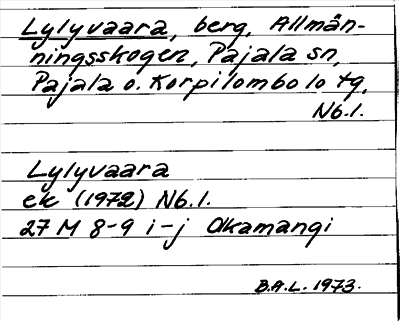 Lylyvaara, berg, Allmän-
ningsskogen, Pajala sn,
Pajala o. Korpilombolo tg,
Nb.l.
Lylyvaara
ek (1972) Nb.l.
27 M 8-9 i-j Olkamangi
B.A.L. 1973.